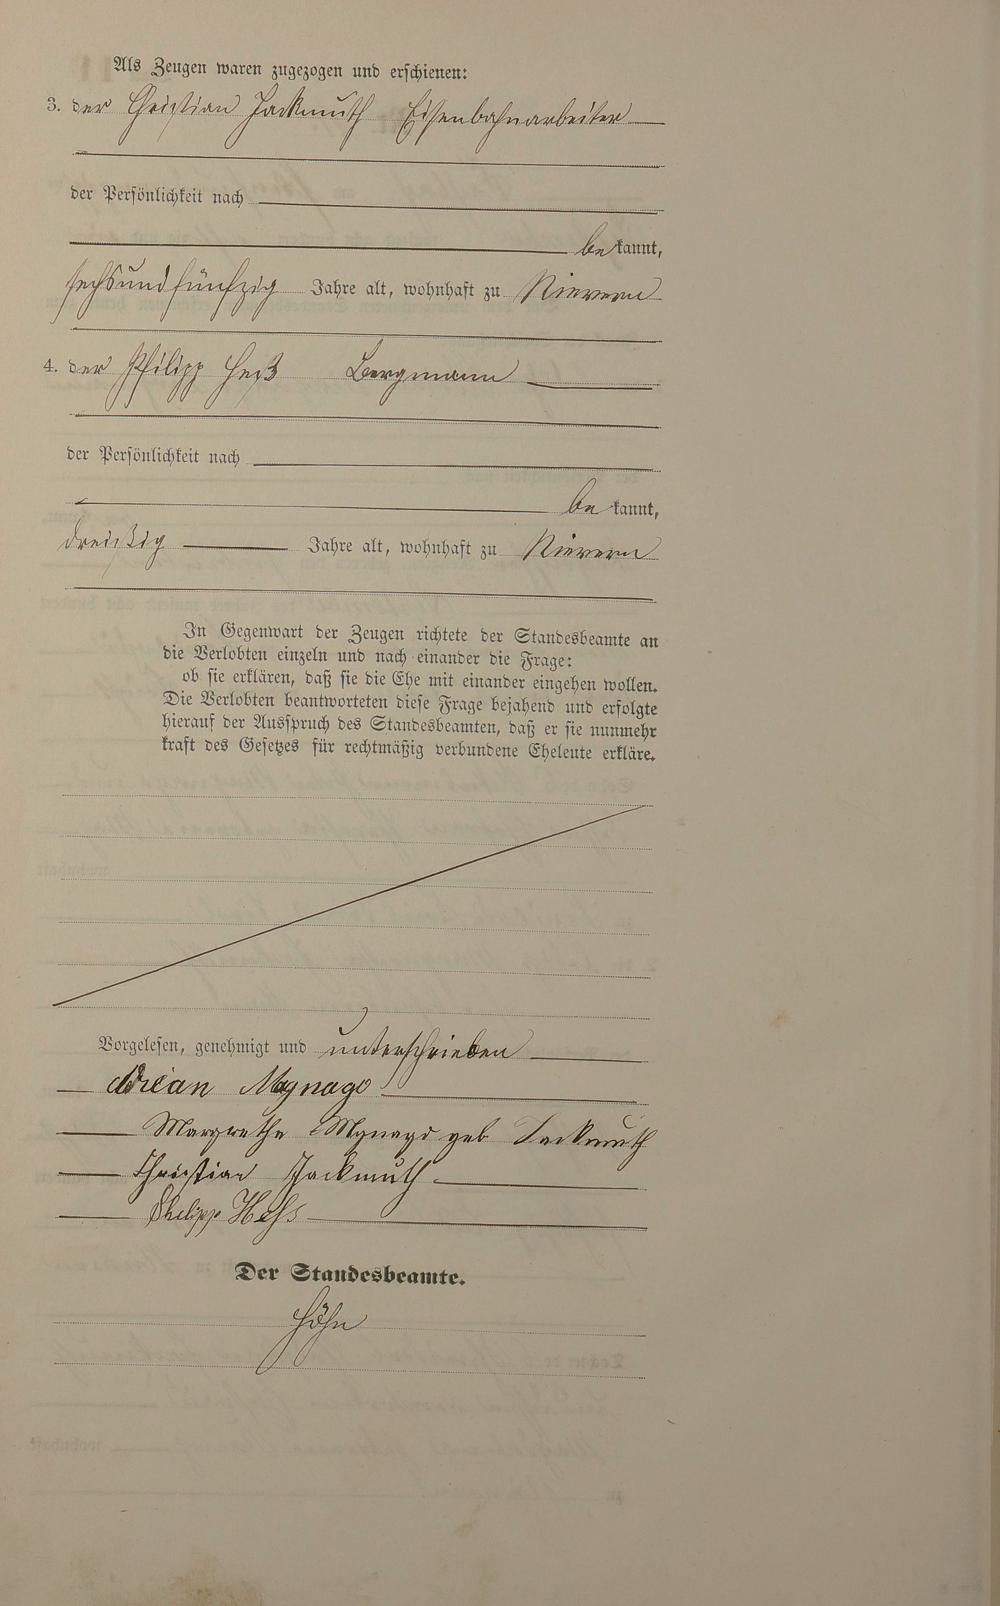 Als Zeugen waren zugezogen und erschienen:
3. der Christian Jackmuth Eisenbahnarbeiter
der Persönlichkeit nach
bekannt,
sechsundfünfzig Jahre alt, wohnhaft zu Nievern
4. der Philipp Heß Bergmann
der Persönlichkeit nach
bekannt,
dreißig Jahre alt, wohnhaft zu Nievern
In Gegenwart der Zeugen richtete der Standesbeamte an
die Verlobten einzeln und nach einander die Frage:
ob sie erklären, daß sie die Ehe mit einander eingehen wollen.
Die Verlobten beantworteten diese Frage bejahend und erfolgte
hierauf der Ausspruch des Standesbeamten, daß er sie nunmehr
kraft des Gesetzes für rechtmäßig verbundene Eheleute erkläre.
Vorgelesen, genehmigt und unterschrieben
Magnago
Margrethe Mgnago geb Jackmuth
Christian Jackmuth
Philipp Hess
Der Standesbeamte.
Höhn